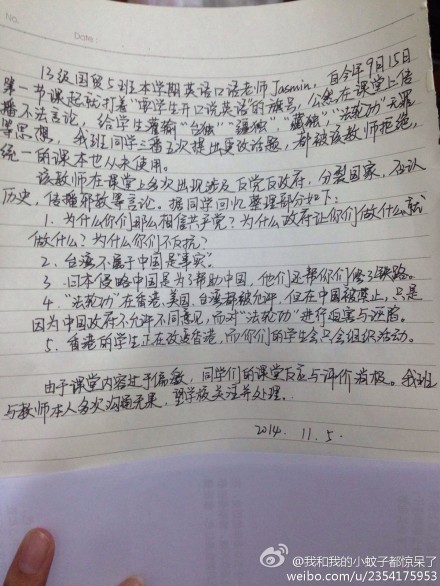 No.
Date:
13级国贸5班本学期英语口语老师Jasmin，自今年9月15日
第一节课起就打着“要学生开口说英语”的旗号，公然在课堂上传
播不法言论，给学生灌输“台独”“疆独”“藏独”“法轮功”无罪
等思想，我班同学三番五次提出更改话题，都被该教师拒绝，
统一的课本也从未使用。
该教师在课堂上多次出现涉及反党反政府，分裂国家，否认
历史，传播邪教等言论。据同学回忆整理部分如下：
1. 为什么你们那么相信共产党？为什么政府让你们做什么就
做什么？为什么你们不反抗？
2. 台湾不属于中国是事实。
3. 日本侵略中国是为了帮助中国，他们还帮你们修了铁路。
4. “法轮功”在香港、美国、台湾都被允许，但在中国被禁止，只是
因为中国政府不允许不同意见，而对“法轮功”进行迫害与诬蔑。
5. 香港的学生正在改变香港，而你们的学生会只会组织活动。
由于课堂内容过于偏激，同学们的课堂反应与评价消极。我班
与教师本人多次沟通无果，望学校关注并处理。
2014. 11. 5.
@我和我的小蚊子都惊呆了
weibo.com/u/2354175953